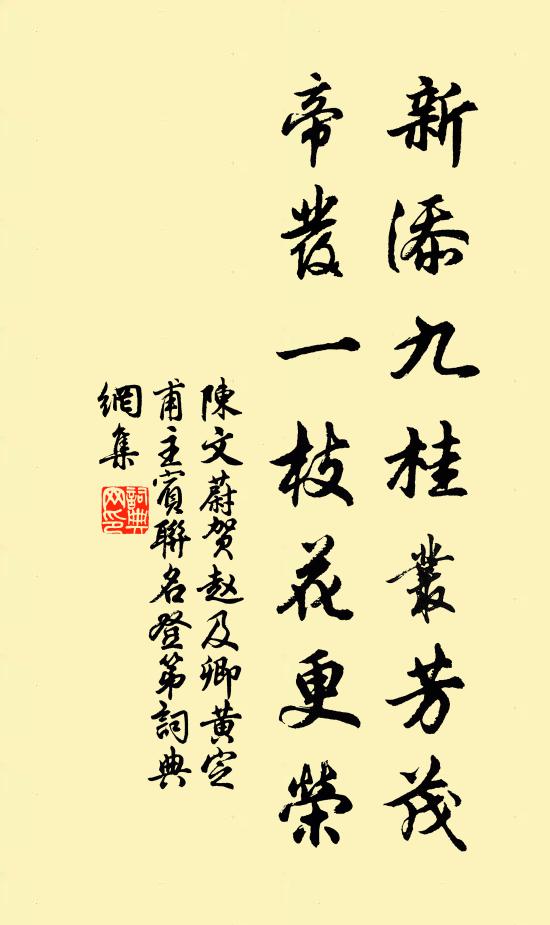 新添九桂叢芳茂
帝發一枝花更榮
陳文蔚贺赵及卿黄定
甫主賓聯名登第詞典
網集
詞典
网印